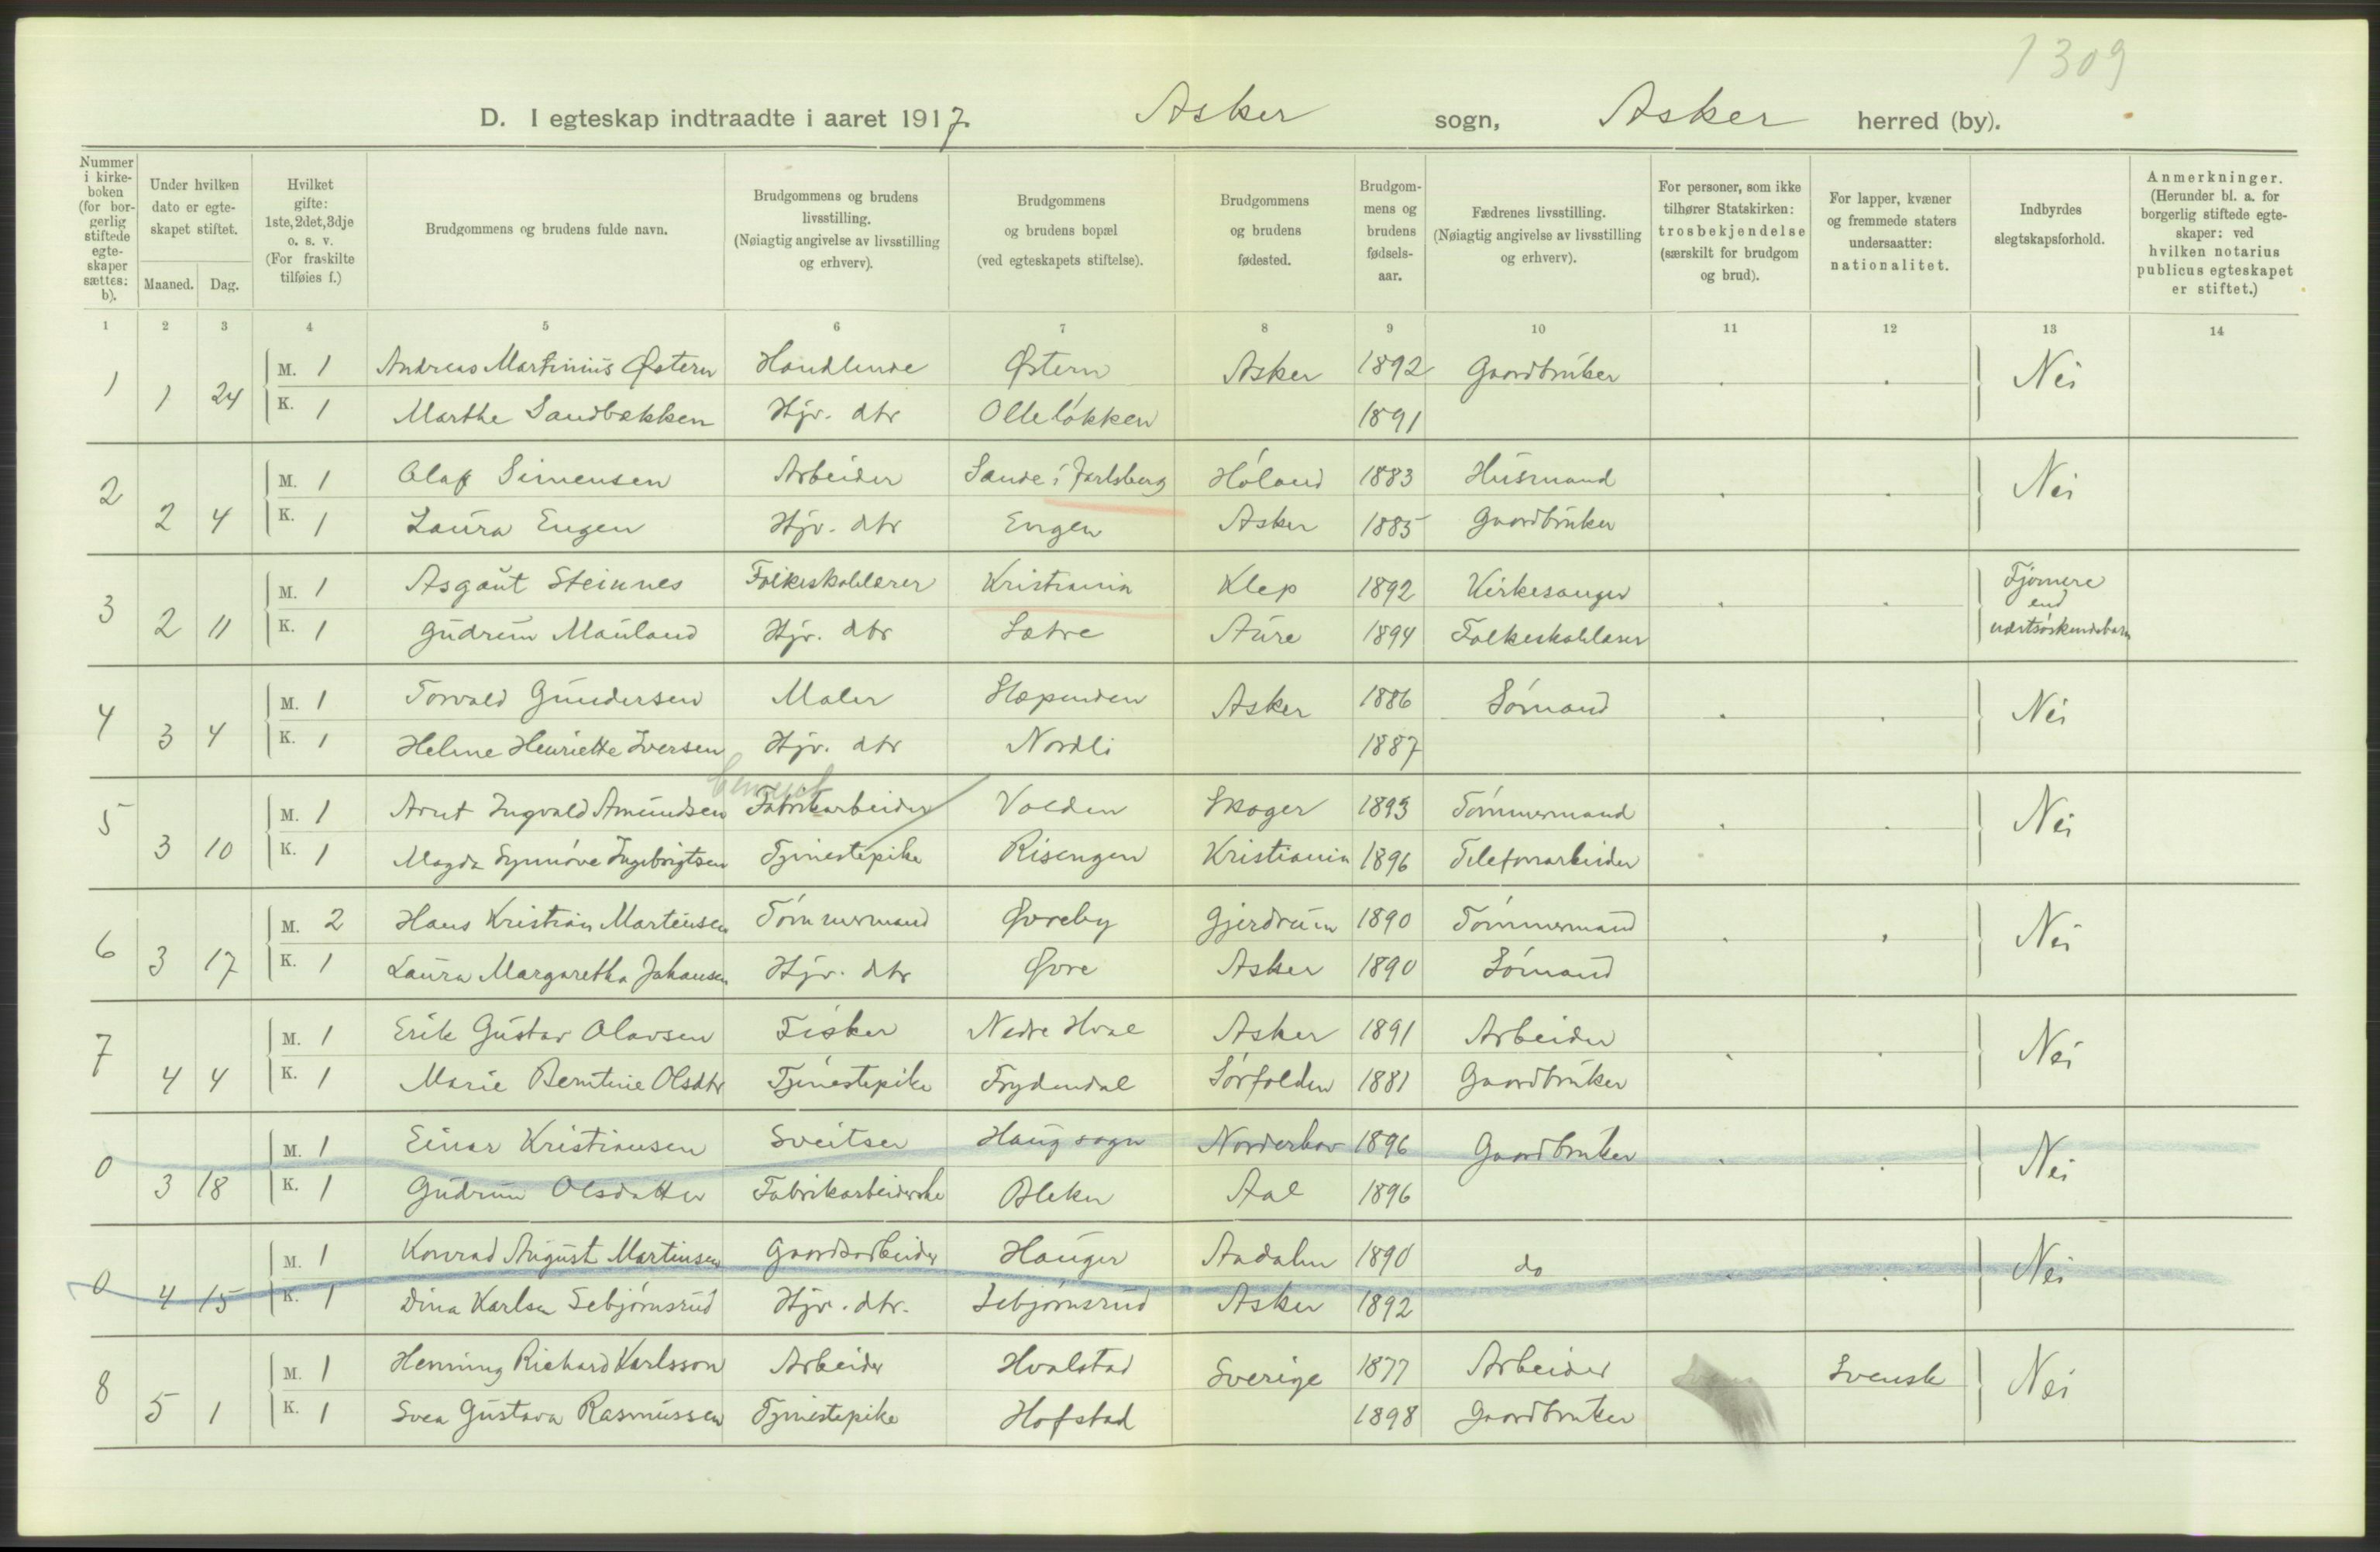 1309
D. I egteskap indtraadte i aaret 1917. Asker sogn, Asker herred (by).
Nummer i kirkeboken (for borgerlig stiftede egteskaper sættes: b).
Under hvilken dato er egteskapet stiftet.
Maaned. Dag.
Hvilket gifte: 1ste, 2det, 3dje o. s. v. (For fraskilte tilføies f.)
Brudgommens og brudens fulde navn.
Brudgommens og brudens livsstilling. (Nøiagtig angivelse av livsstilling og erhverv).
Brudgommens og brudens bopæl (ved egteskapets stiftelse).
Brudgommens og brudens fødested.
Brudgommens og brudens fødselsaar.
Fædrenes livsstilling. (Nøiagtig angivelse av livsstilling og erhverv).
For personer, som ikke tilhører Statskirken: trosbekjendelse (særskilt for brudgom og brud).
For lapper, kvæner og fremmede staters undersaatter: nationalitet.
Indbyrdes slegtskapsforhold.
Anmerkninger. (Herunder bl. a. for borgerlig stiftede egteskaper: ved hvilken notarius publicus egteskapet er stiftet.)
1 2 3 4 5 6 7 8 9 10 11 12 13 14
1 1 24 M. 1 Andreas Martinius Østern Handlende Østern Asker 1892 Gaardbruker Nei
K. 1 Marthe Sandbækken Hjv. dtr Olleløkken 1891
2 2 4 M. 1 Olaf Simensen Arbeider Sande i Jarlsberg Høland 1883 Husmand Nei
K. 1 Laura Engen Hjv. dtr Engen Asker 1885 Gaardbruker
3 2 11 M. 1 Asgaut Steinnes Folkeskolelærer Kristiania Klep 1892 Kirkesanger Fjernere end
K. 1 Gudrun Mauland Hjv. dtr Sætre Aure 1894 Folkeskolelærer nærtsøskendebarn
4 3 4 M. 1 Torvald Gundersen Maler Slependen Asker 1886 Sømand Nei
K. 1 Helene Henriette Iversen Hjv. dtr Nordli 1887
5 3 10 M. 1 Arnt Ingvald Amundsen Fabrikarbeider Volden Skoger 1893 Tømmermand Nei
K. 1 Magda Synnøve Ingebrigtsen Tjenestepike Risengen Kristiania 1896 Telefonarbeider
6 3 17 M. 2 Hans Kristian Martinsen Tømmermand Øvreby Gjerdrum 1890 Tømmermand Nei
K. 1 Laura Margaretha Johansen Hjv. dtr Øvre Asker 1890 Sømand
7 4 4 M. 1 Erik Gustav Olavsen Fisker Nedre Hval Asker 1891 Arbeider Nei
K. 1 Marie Berntine Olsdtr Tjenestepike Frydendal Sørfolden 1881 Gaardbruker
0 3 18 M. 1 Einar Kristiansen Sveitser Haug sogn Norderhov 1896 Gaardbruker Nei
K. 1 Gudrun Olsdatter Fabrikarbeiderske Bleker Aal 1896
0 4 15 M. 1 Konrad August Martinsen Gaardsarbeider Hauger Aadalen 1890 do Nei
K. 1 Dina Karlsen Sebjørnsrud Hjv. dtr. Sebjørnsrud Asker 1892
8 5 1 M. 1 Henning Richard Karlsson Arbeider Hvalstad Sverige 1877 Arbeider Svensk Nei
K. 1 Svea Gustava Rasmussen Tjenestepike Hofstad 1898 Gaardbruker